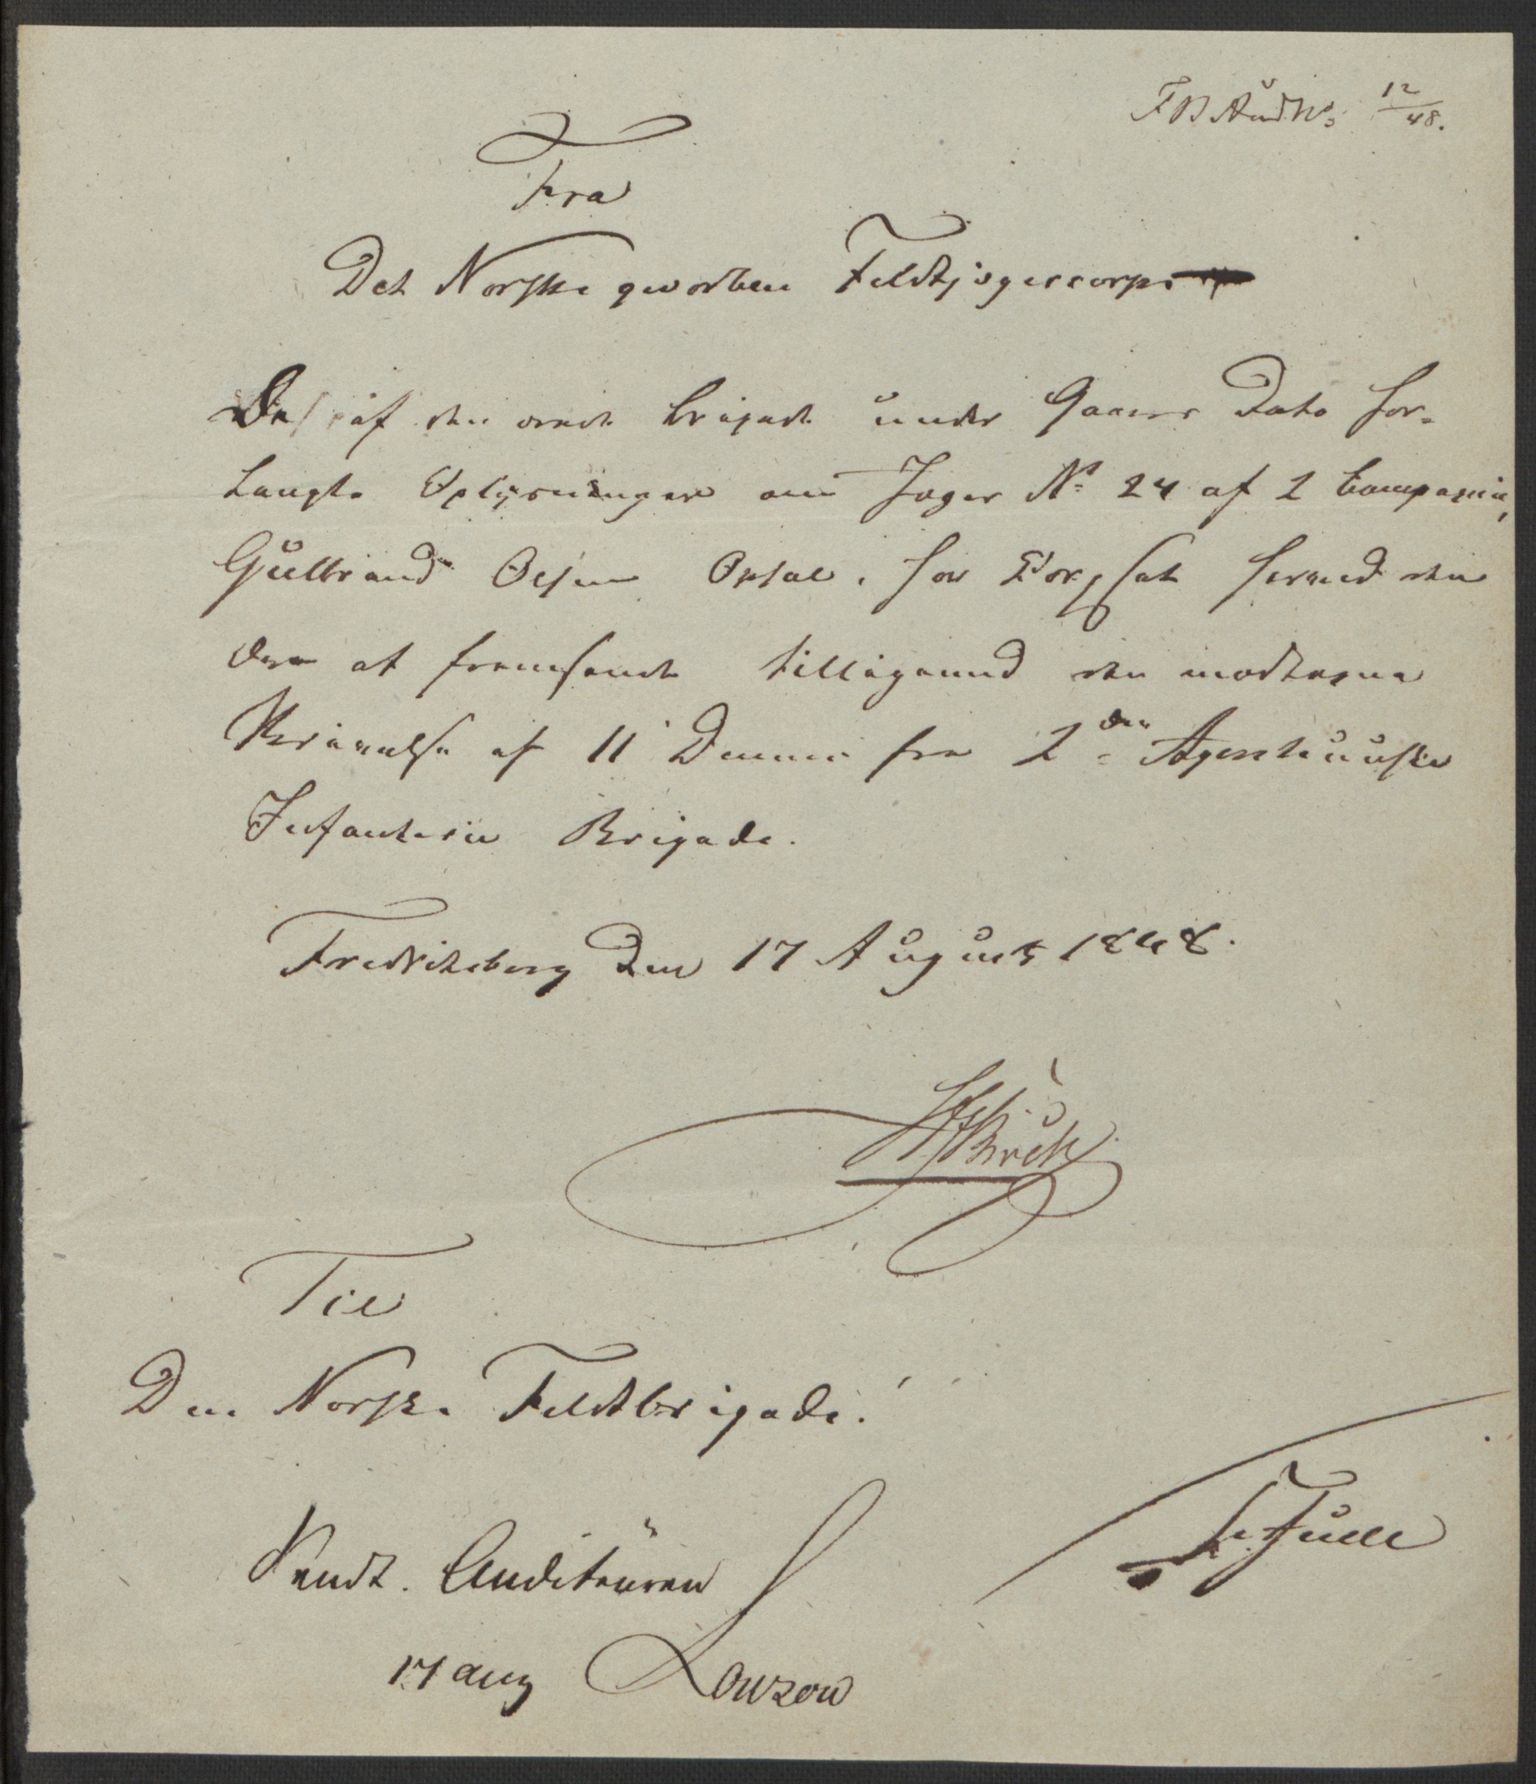 12/48.
Fra
Det Norske gevorbne Feldtjægercorps
De af den ærede Brigade under Gaars Dato for-
langte Oplysninger om Jæger No 24 af 2 Compagnie,
Gulbrand Olsen Opsal, har Corpset herved den
Ære at fremsende tilligemed den modtagne
Skrivelse af 11 Dennes fra 2den Agershuuske
Infanterie Brigade.
Fredriksberg Den 17 August 1848.
Til
Den Norske Feldtbrigade!
Sendt. Auditeuren
17 aug Lowzow
Juell